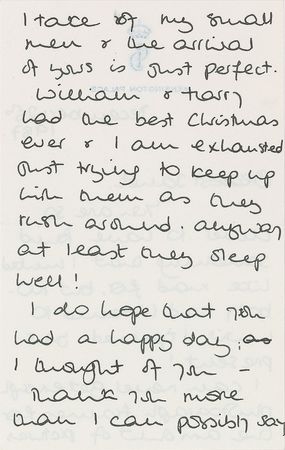 I take of my small
men & the arrival
of yours is just perfect.
William & Harry
had the best Christmas
ever & I am exhausted
just trying to keep up
with them as they
rush around. anyway
at least they sleep
well!
I do hope that you
had a happy day. as
I thought of you -
Thank you more
than I can possibly say